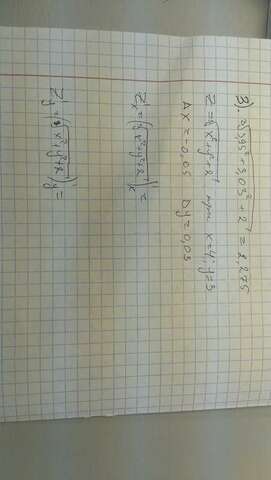 3) ∜(3,95² + 3,03² + 2) = 2,275
Z = ∜(x² + y² + 2) при x=4; y=3
Δx = -0,05 Δy = 0,03
Z'x = (∜(x² + y² + 2))'x =
Z'y = (∜(x² + y² + 2))'y =